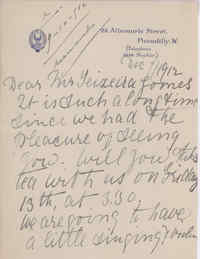 24 Albemarle Street,
Piccadilly. W.
Dec 7/1912
Dear Mr Teixeira Gomes
It is such a long time
since we had the
pleasure of seeing
you. Will you take
tea with us on Friday
13th, at 5.30.
We are going to have
a little singing &